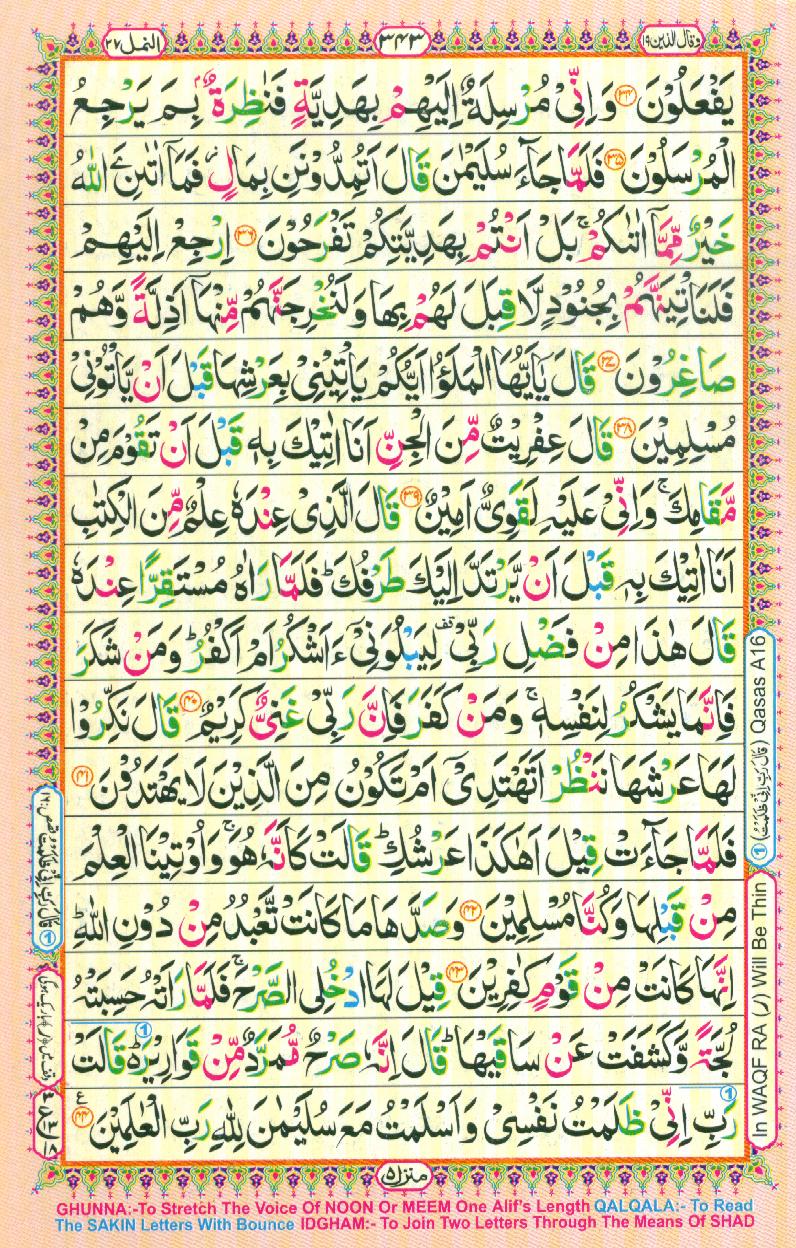 وقال الذین ۱۹
۳۴۳
النمل ۲۷
یَفْعَلُوْنَ ﴿۳۴﴾ وَ اِنِّیْ مُرْسِلَةٌ اِلَیْهِمْ بِهَدِیَّةٍ فَنٰظِرَةٌۢ بِمَ یَرْجِعُ
الْمُرْسَلُوْنَ ﴿۳۵﴾ فَلَمَّا جَآءَ سُلَیْمٰنَ قَالَ اَتُمِدُّوْنَنِ بِمَالٍ٘ فَمَاۤ اٰتٰىنِۦَ اللّٰهُ
خَیْرٌ مِّمَّاۤ اٰتٰىكُمْ ۚ بَلْ اَنْتُمْ بِهَدِیَّتِكُمْ تَفْرَحُوْنَ ﴿۳۶﴾ اِرْجِعْ اِلَیْهِمْ
فَلَنَاْتِیَنَّهُمْ بِجُنُوْدٍ لَّا قِبَلَ لَهُمْ بِهَا وَ لَنُخْرِجَنَّهُمْ مِّنْهَاۤ اَذِلَّةً وَّ هُمْ
صَاغِرُوْنَ ﴿۳۷﴾ قَالَ یٰۤاَیُّهَا الْمَلَؤُا اَیُّكُمْ یَاْتِیْنِیْ بِعَرْشِهَا قَبْلَ اَنْ یَّاْتُوْنِیْ
مُسْلِمِیْنَ ﴿۳۸﴾ قَالَ عِفْرِیْتٌ مِّنَ الْجِنِّ اَنَا اٰتِیْكَ بِهٖ قَبْلَ اَنْ تَقُوْمَ مِنْ
مَّقَامِكَ ۚ وَ اِنِّیْ عَلَیْهِ لَقَوِیٌّ اَمِیْنٌ ﴿۳۹﴾ قَالَ الَّذِیْ عِنْدَهٗ عِلْمٌ مِّنَ الْكِتٰبِ
اَنَا اٰتِیْكَ بِهٖ قَبْلَ اَنْ یَّرْتَدَّ اِلَیْكَ طَرْفُكَ ؕ فَلَمَّا رَاٰهُ مُسْتَقِرًّا عِنْدَهٗ
قَالَ هٰذَا مِنْ فَضْلِ رَبِّیْ ۫ۖ لِیَبْلُوَنِیْۤ ءَاَشْكُرُ اَمْ اَكْفُرُ ؕ وَ مَنْ شَكَرَ
فَاِنَّمَا یَشْكُرُ لِنَفْسِهٖ ۚ وَ مَنْ كَفَرَ فَاِنَّ رَبِّیْ غَنِیٌّ كَرِیْمٌ ﴿۴۰﴾ قَالَ نَكِّرُوْا
لَهَا عَرْشَهَا نَنْظُرْ اَتَهْتَدِیْۤ اَمْ تَكُوْنُ مِنَ الَّذِیْنَ لَا یَهْتَدُوْنَ ﴿۴۱﴾
فَلَمَّا جَآءَتْ قِیْلَ اَهٰكَذَا عَرْشُكِ ؕ قَالَتْ كَاَنَّهٗ هُوَ ۚ وَ اُوْتِیْنَا الْعِلْمَ
مِنْ قَبْلِهَا وَ كُنَّا مُسْلِمِیْنَ ﴿۴۲﴾ وَ صَدَّهَا مَا كَانَتْ تَّعْبُدُ مِنْ دُوْنِ اللّٰهِ ؕ
اِنَّهَا كَانَتْ مِنْ قَوْمٍ كٰفِرِیْنَ ﴿۴۳﴾ قِیْلَ لَهَا ادْخُلِی الصَّرْحَ ۚ فَلَمَّا رَاَتْهُ حَسِبَتْهُ
لُجَّةً وَّ كَشَفَتْ عَنْ سَاقَیْهَا ؕ قَالَ اِنَّهٗ صَرْحٌ مُّمَرَّدٌ مِّنْ قَوَارِیْرَ ؕ۬ قَالَتْ
رَبِّ اِنِّیْ ظَلَمْتُ نَفْسِیْ وَ اَسْلَمْتُ مَعَ سُلَیْمٰنَ لِلّٰهِ رَبِّ الْعٰلَمِیْنَ ﴿۴۴﴾
منزل ۵
① (قَالَ رَبِّ اِنِّیْ ظَلَمْتُ) Qasas A16
In WAQF RA (ر) Will Be Thin
GHUNNA:-To Stretch The Voice Of NOON Or MEEM One Alif's Length QALQALA:- To Read
The SAKIN Letters With Bounce IDGHAM:- To Join Two Letters Through The Means Of SHAD